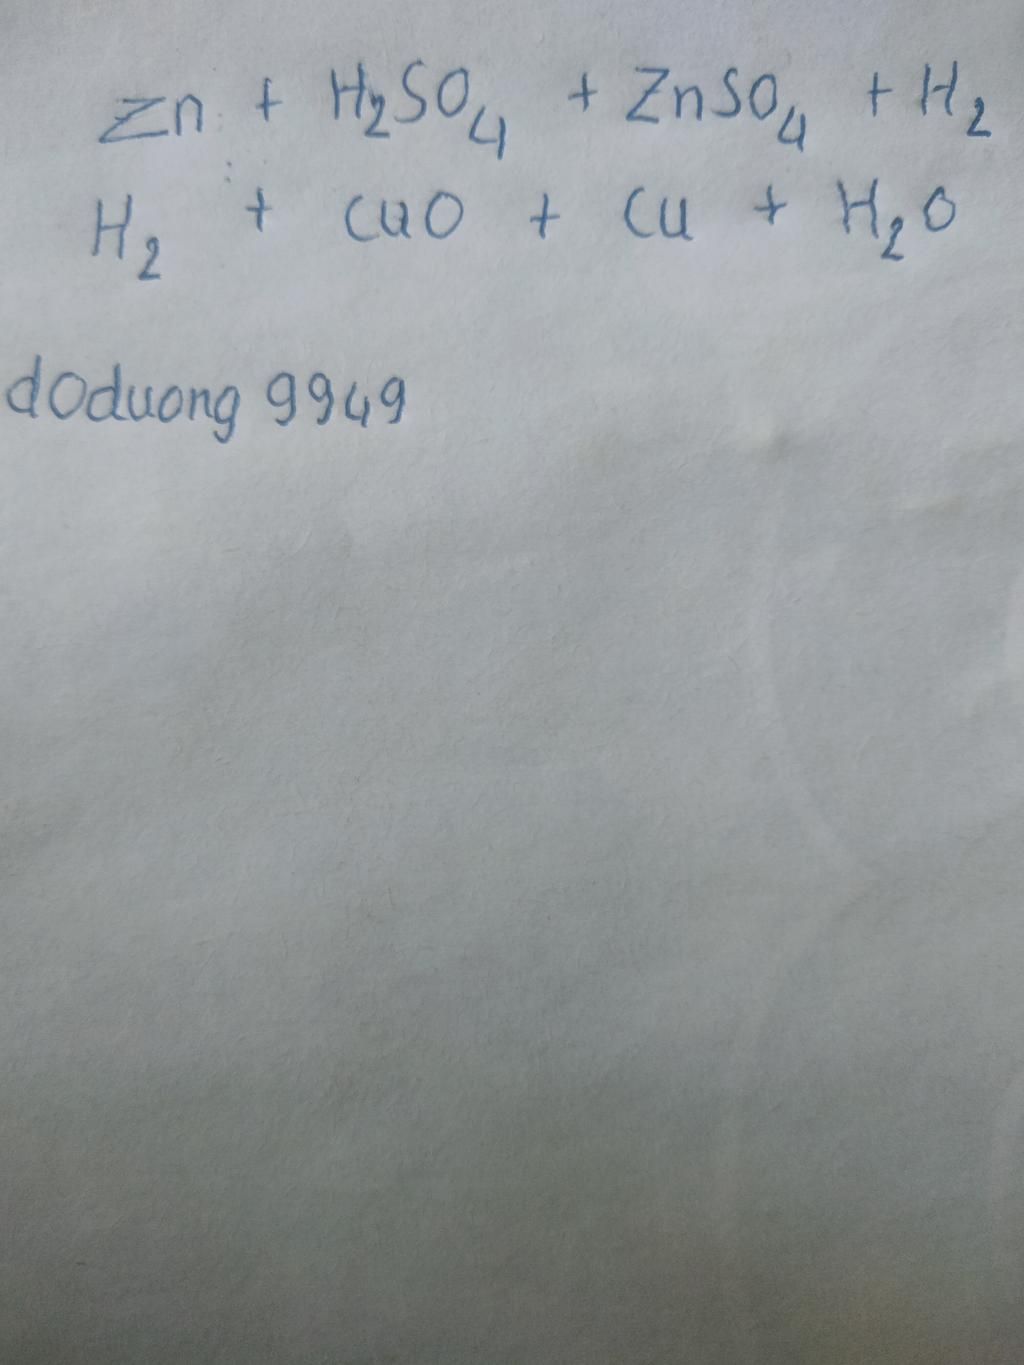 Zn + H₂SO₄ + ZnSO₄ + H₂
H₂ + CuO + Cu + H₂O
doduong 9949